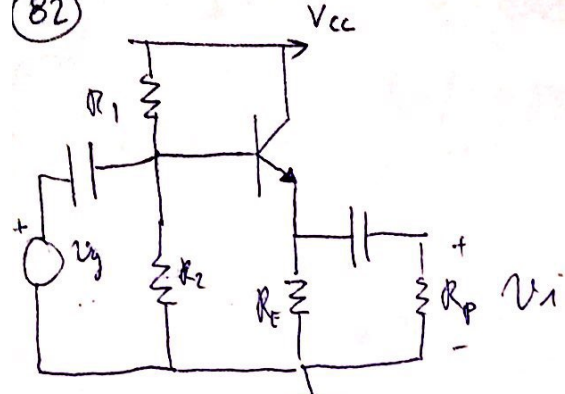 82
Vcc
R1
+
vg
R2
RE
+
Rp vi
-